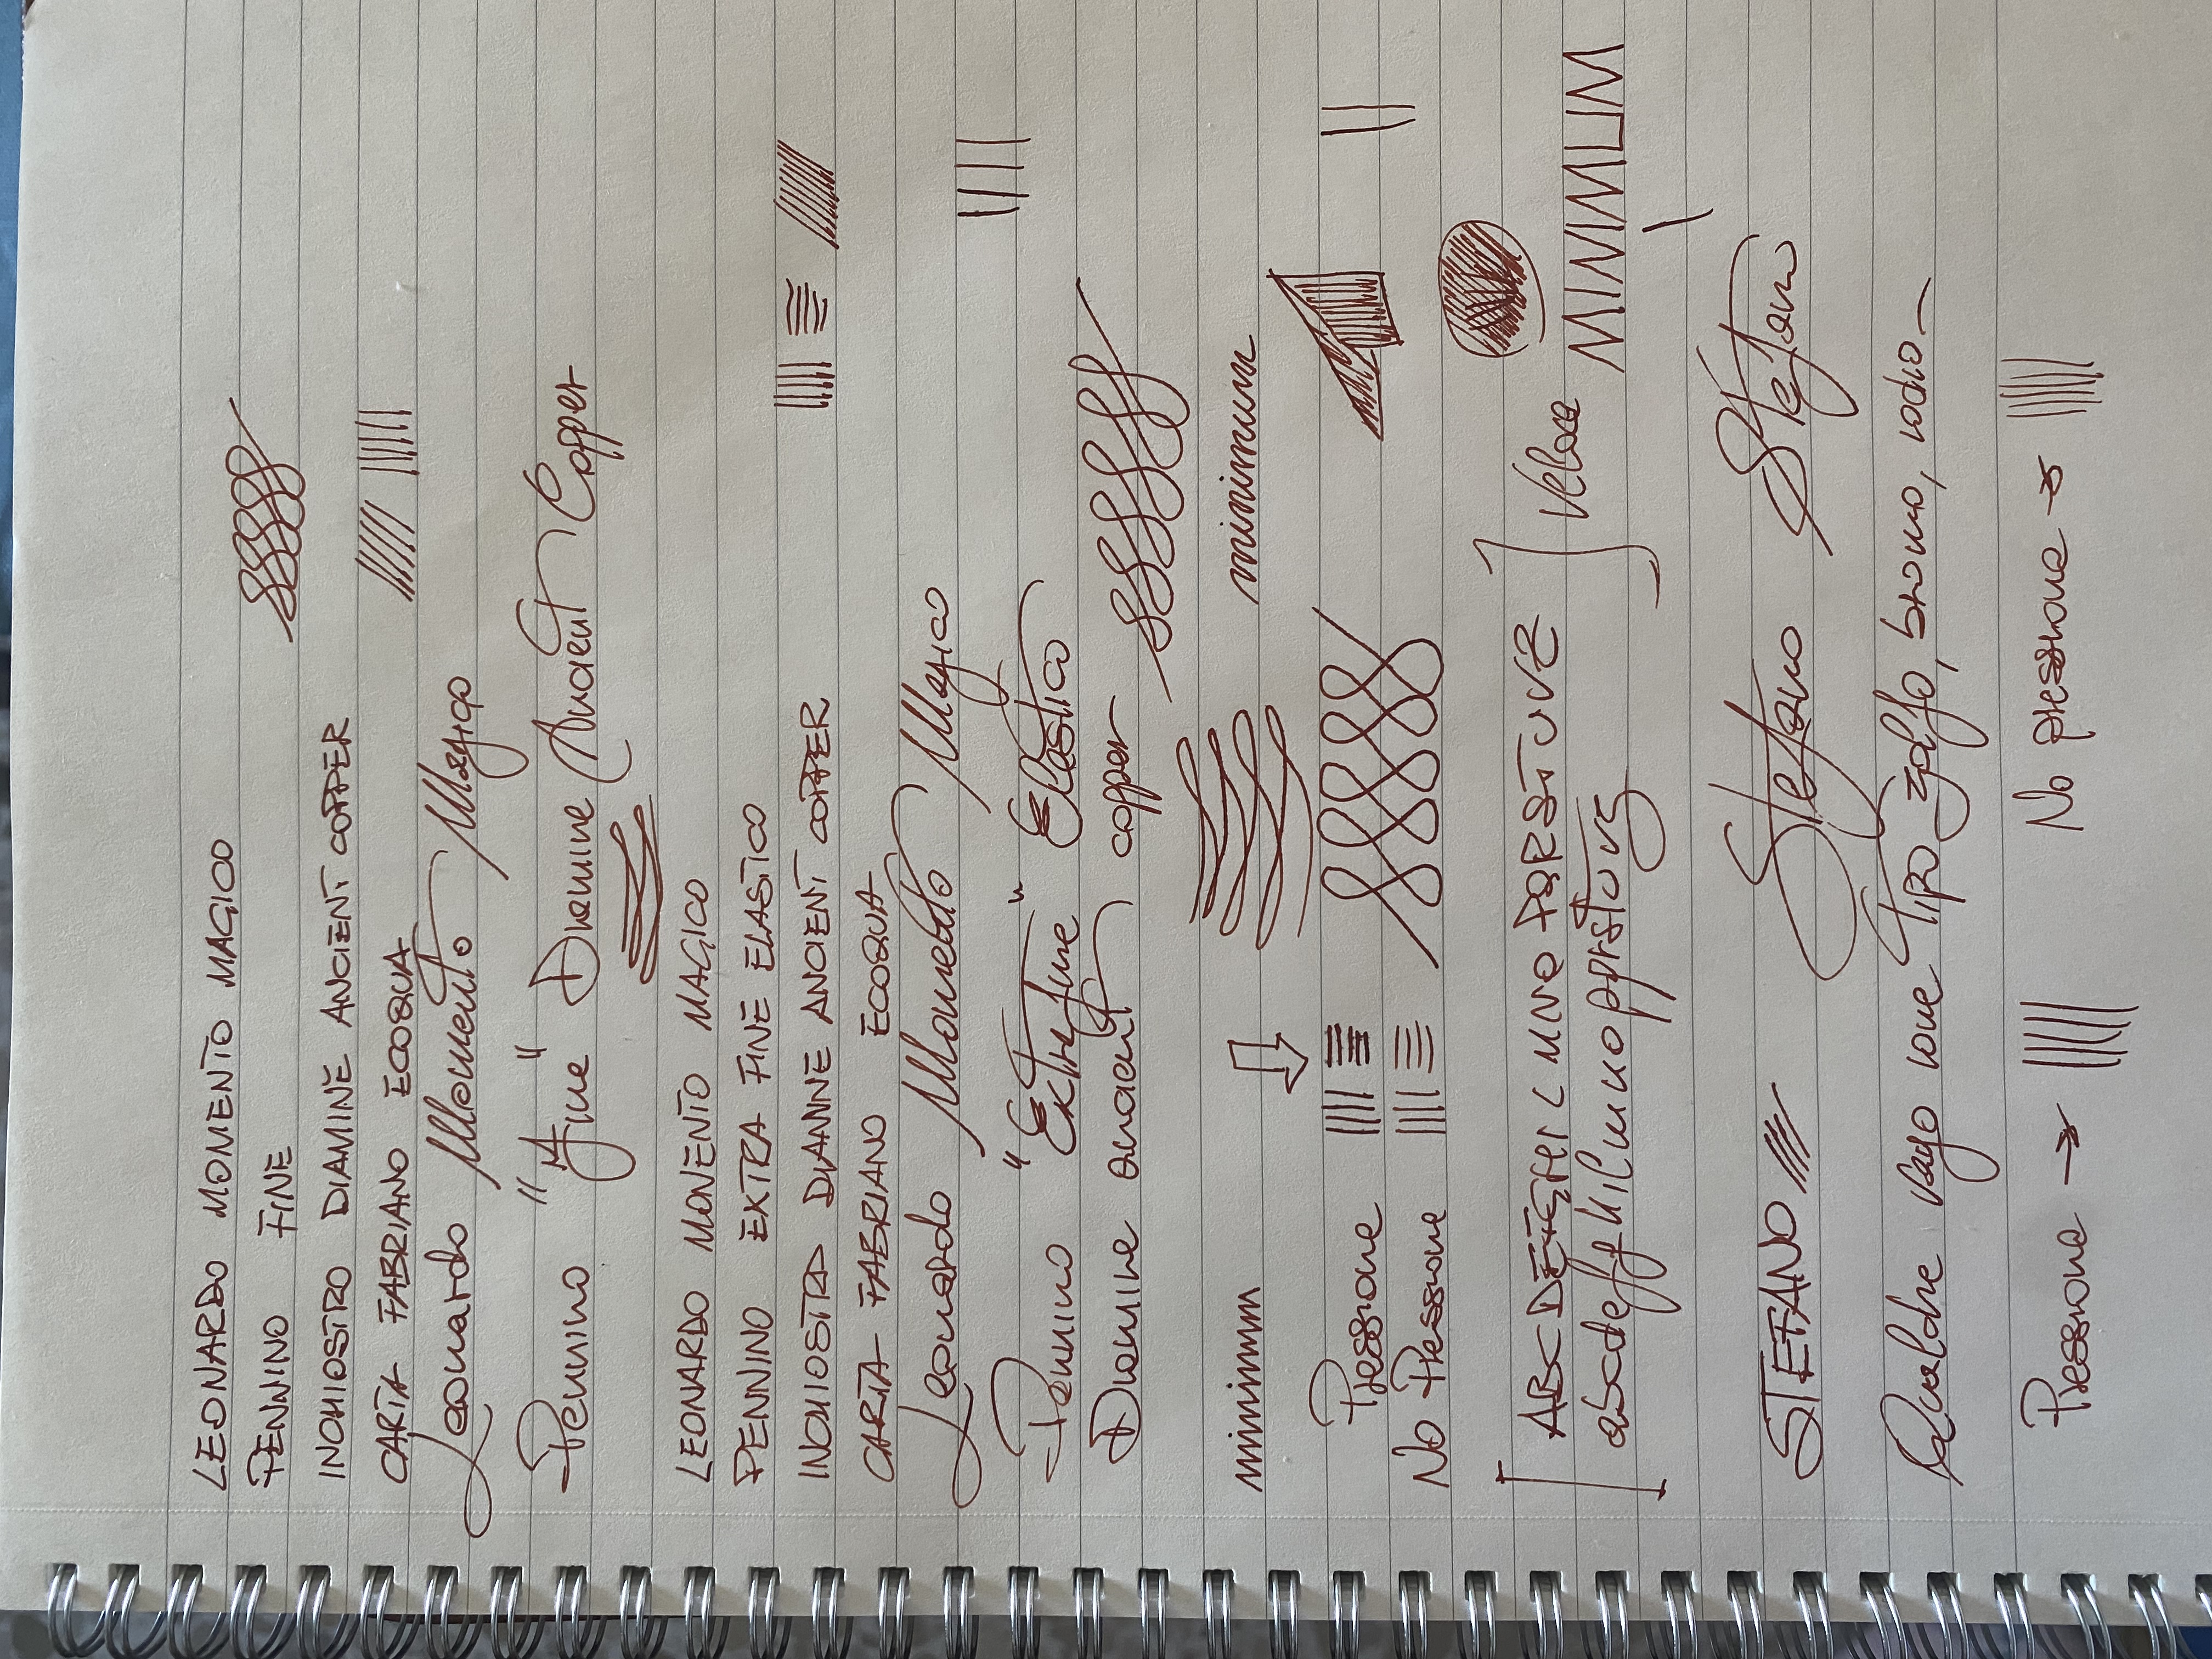 LEONARDO MOMENTO MAGICO
PENNINO FINE
INCHIOSTRO DIAMINE ANCIENT COPPER
CARTA FABRIANO ECOQUA
Leonardo Momento Magico
Pennino "Fine" Diamine Ancient Copper
LEONARDO MOMENTO MAGICO
PENNINO EXTRA FINE ELASTICO
INCHIOSTRO DIAMINE ANCIENT COPPER
CARTA FABRIANO ECOQUA
Leonardo Momento Magico
Pennino "Extrafine" Elastico
Diamine ancient copper
minimum minimum
Pressione
No Pressione
ABCDEFGHILMNOPQRSTUVZ
abcdefghilmnopqrstuvz
Veloce
MINIMUM
STEFANO Stefano Stefano
Qualche vago ione tipo zolfo, bromo, iodio
Pressione → No pressione →